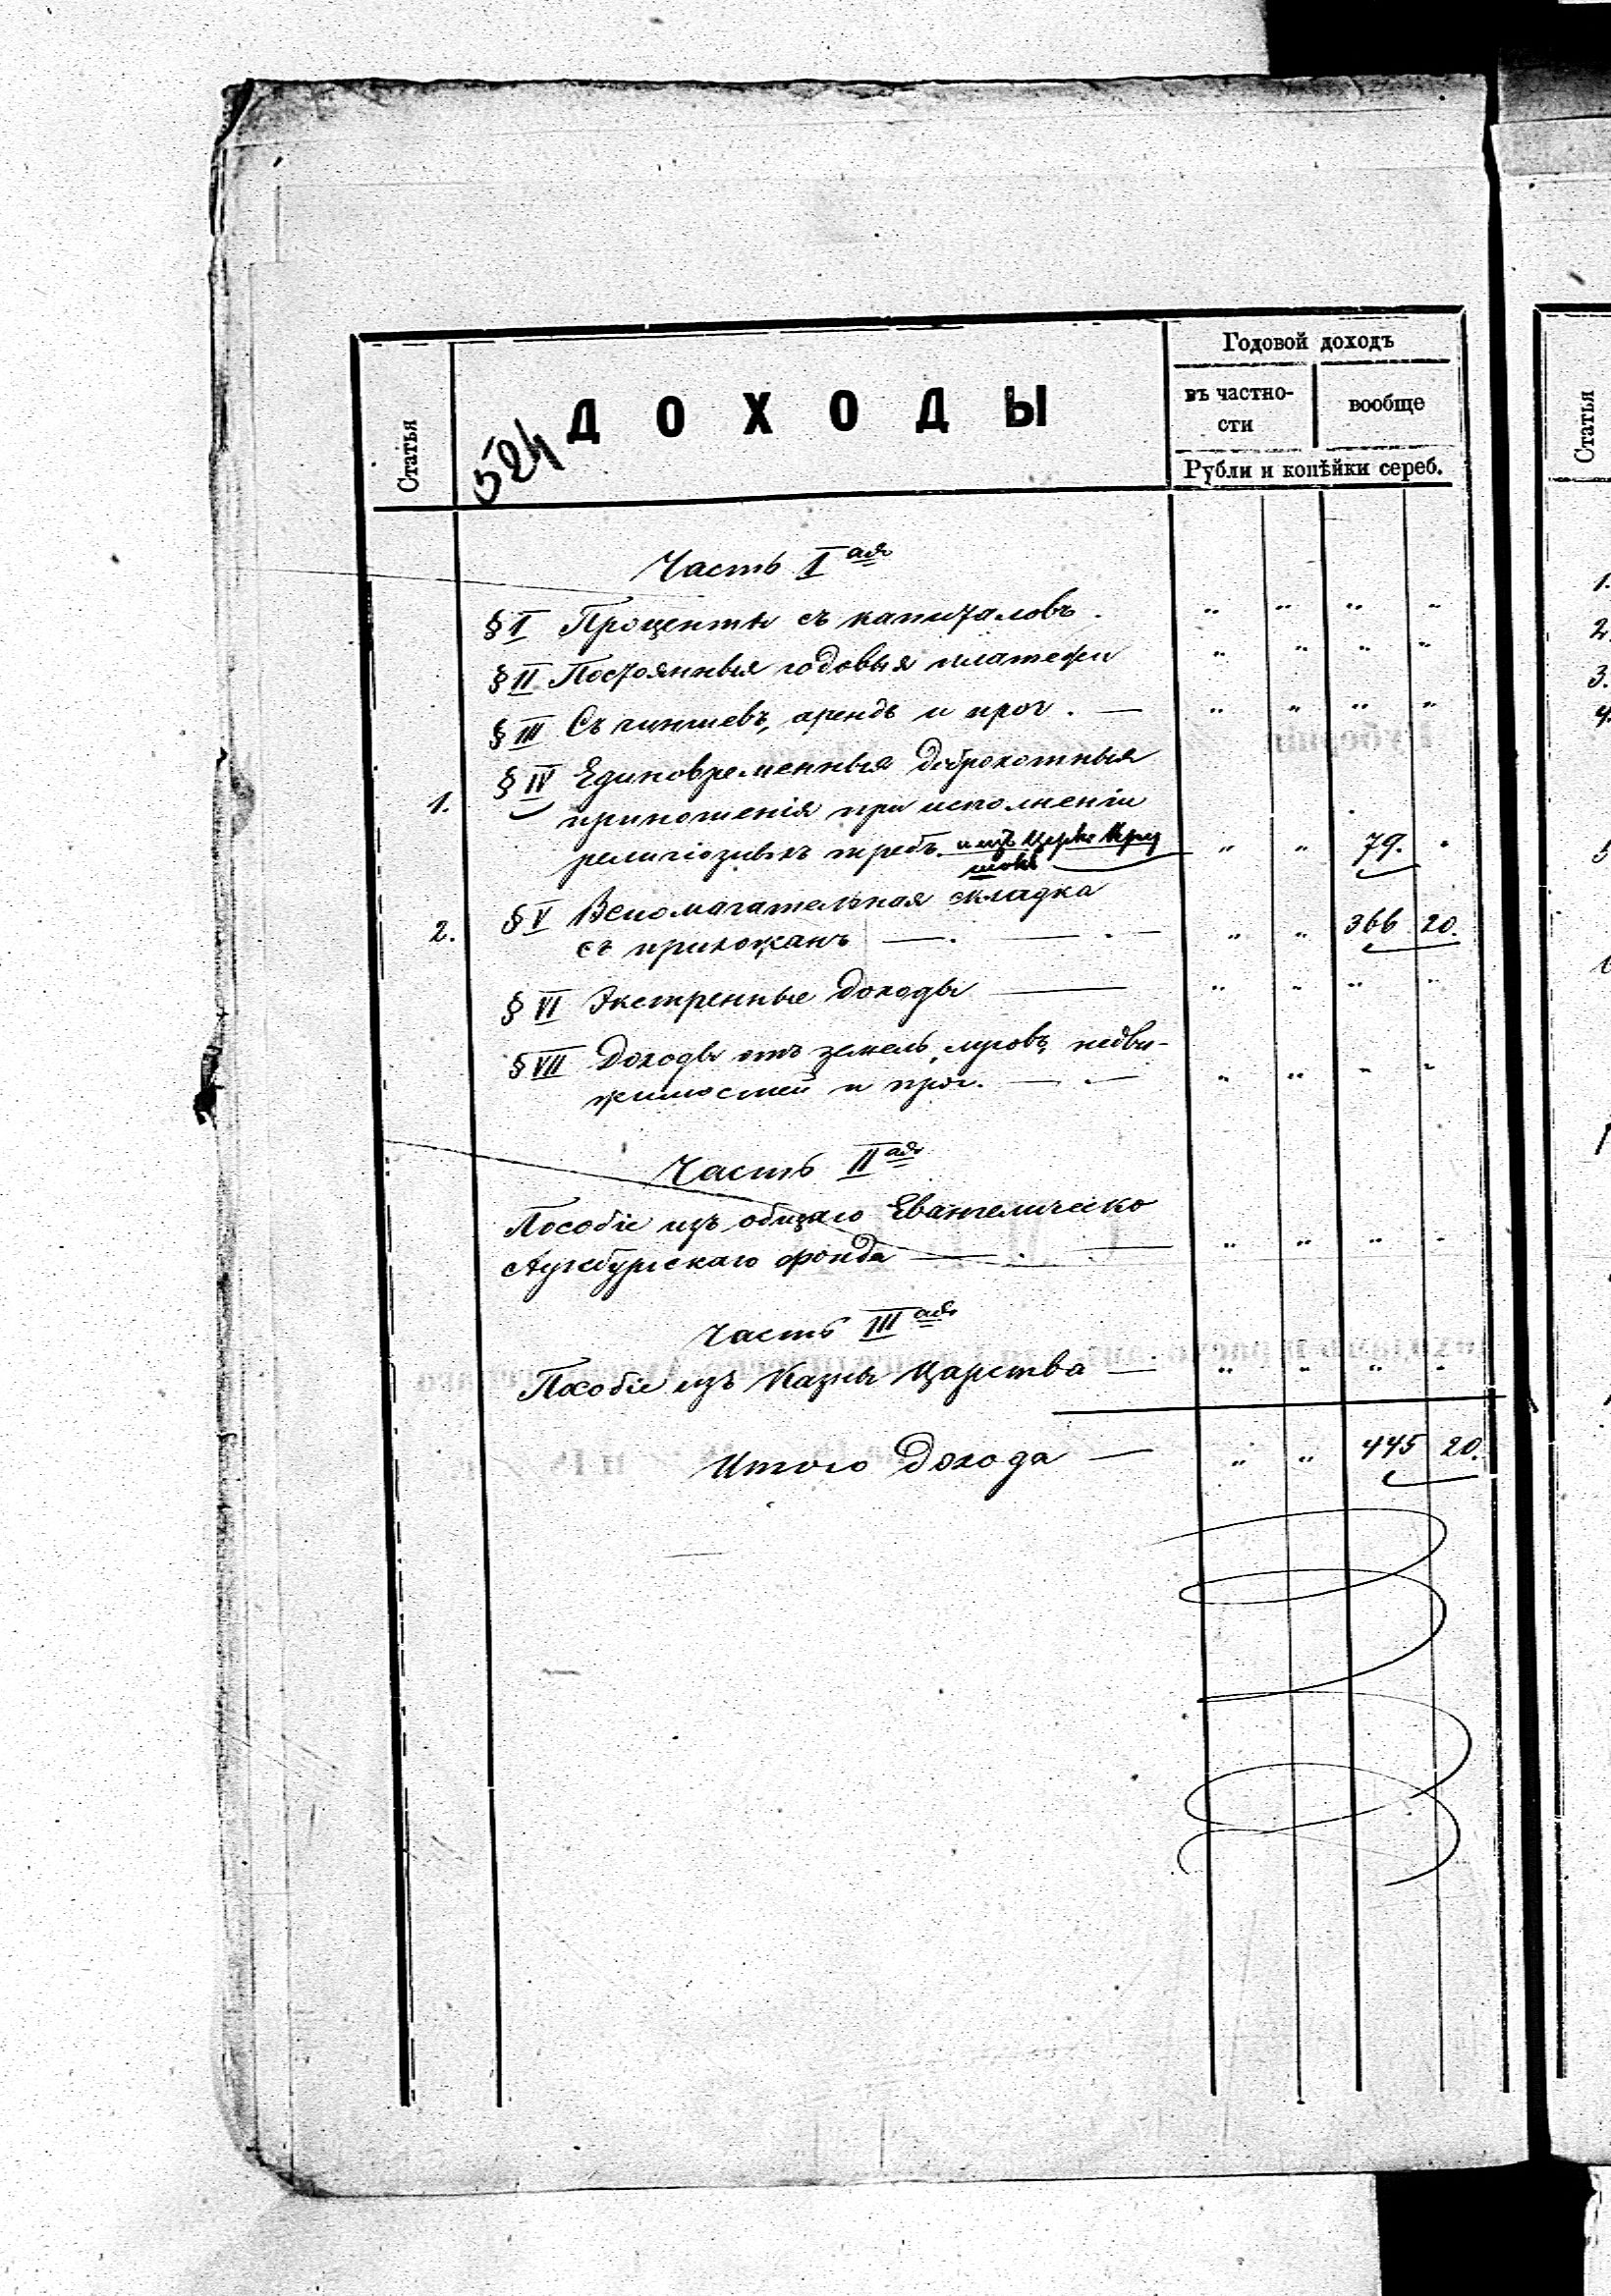 Годовой доходъ
Статья
524
ДОХОДЫ
въ частно-
сти
вообще
Рубли и копѣйки сереб.
Статья
Часть I ая
§ I Проценты съ капиталовъ. " " " "
§ II Постоянныя годовыя платежи " " " "
§ III Съ чиншевъ, арендъ и проч. — " " " "
1. § IV Единовременныя доброхотныя
приношенія при исполненіи
религіозныхъ требъ. изъ Церк. Круж " " 79. "
2. § V Вспомагательная складка
съ прихожанъ — . — . — " " 366 20.
§ VI Экстренные доходы — " " " "
§ VII Доходы отъ земель, луговъ, недви-
жимостей и проч. — . — " " " "
Часть II ая
Пособіе изъ общаго Евангелическо
Аугсбургскаго фонда — . — " " " "
Часть III ая
Пособіе изъ Казны Царства — " " " "
Итого Дохода — " " 445 20.
1.
2.
3.
4.